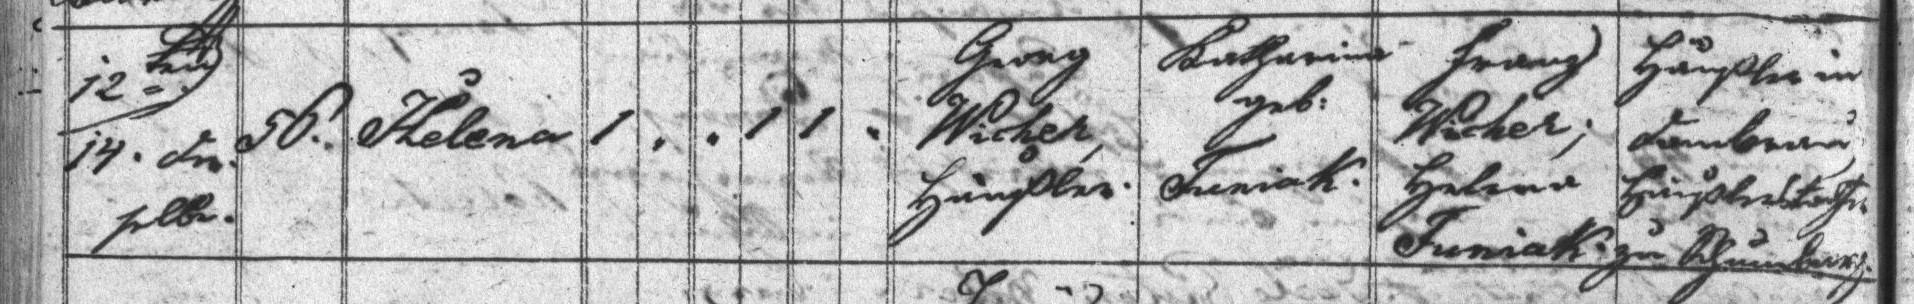 12 ten
14. dsselbe.
56.
Helena
1 . . 1 1 .
Georg
Wicher,
Häußler.
Katharina
geb:
Tuniak.
Franz
Wicher;
Helena
Tuniak.
Häußler in
Dombrau
Häußlerstochter
zu Schumbarg.